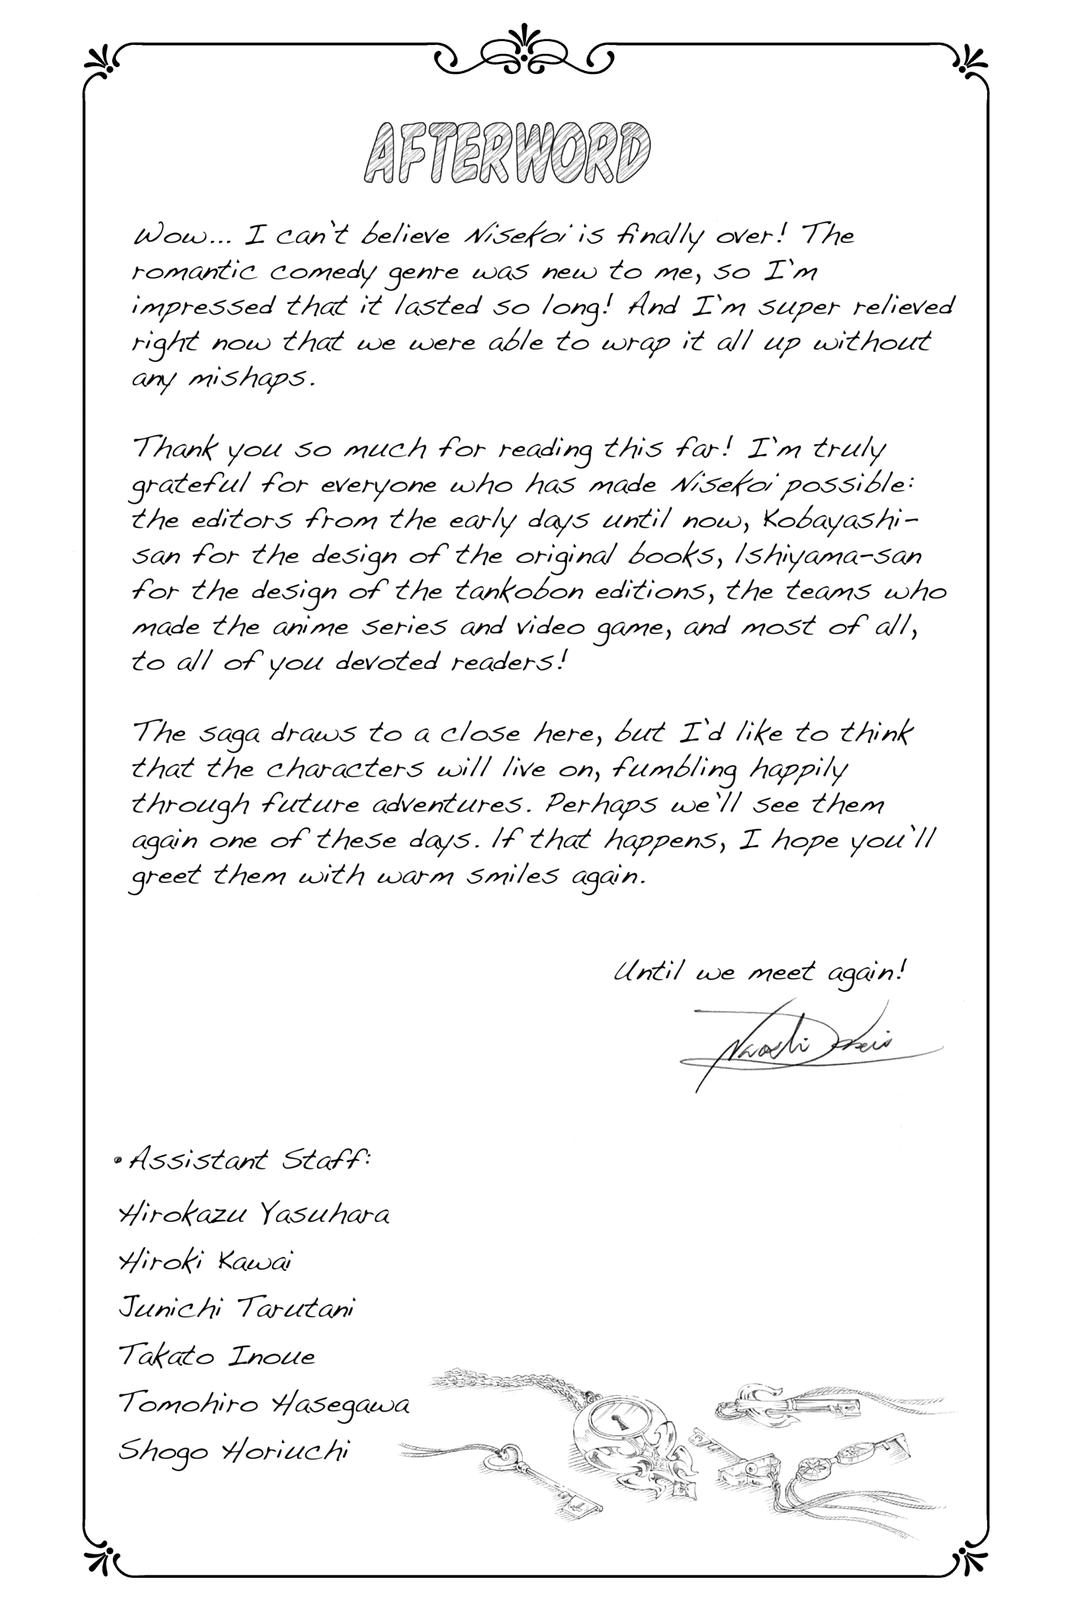 AFTERWORD
Wow... I can't believe Nisekoi is finally over! The
romantic comedy genre was new to me, so I'm
impressed that it lasted so long! And I'm super relieved
right now that we were able to wrap it all up without
any mishaps.
Thank you so much for reading this far! I'm truly
grateful for everyone who has made Nisekoi possible:
the editors from the early days until now, Kobayashi-
san for the design of the original books, Ishiyama-san
for the design of the tankobon editions, the teams who
made the anime series and video game, and most of all,
to all of you devoted readers!
The saga draws to a close here, but I'd like to think
that the characters will live on, fumbling happily
through future adventures. Perhaps we'll see them
again one of these days. If that happens, I hope you'll
greet them with warm smiles again.
Until we meet again!
•Assistant Staff:
Hirokazu Yasuhara
Hiroki Kawai
Junichi Tarutani
Takato Inoue
Tomohiro Hasegawa
Shogo Horiuchi